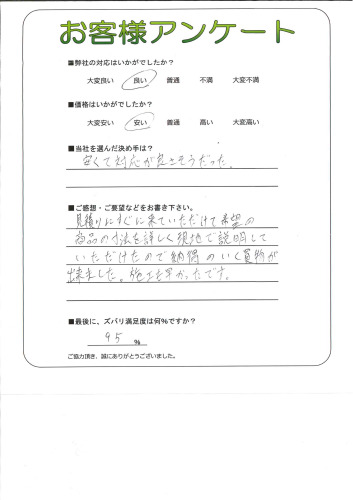 お客様アンケート
■弊社の対応はいかがでしたか？
大変良い 良い 普通 不満 大変不満
■価格はいかがでしたか？
大変安い 安い 普通 高い 大変高い
■当社を選んだ決め手は？
安くて対応が良さそうだった。
■ご感想・ご要望などをお書き下さい。
見積りにすぐに来ていただけて希望の
商品の寸法を詳しく現地で説明して
いただけたので納得のいく買物が
出来ました。施工も早かったです。
■最後に、ズバリ満足度は何%ですか？
95 %
ご協力頂き、誠にありがとうございました。